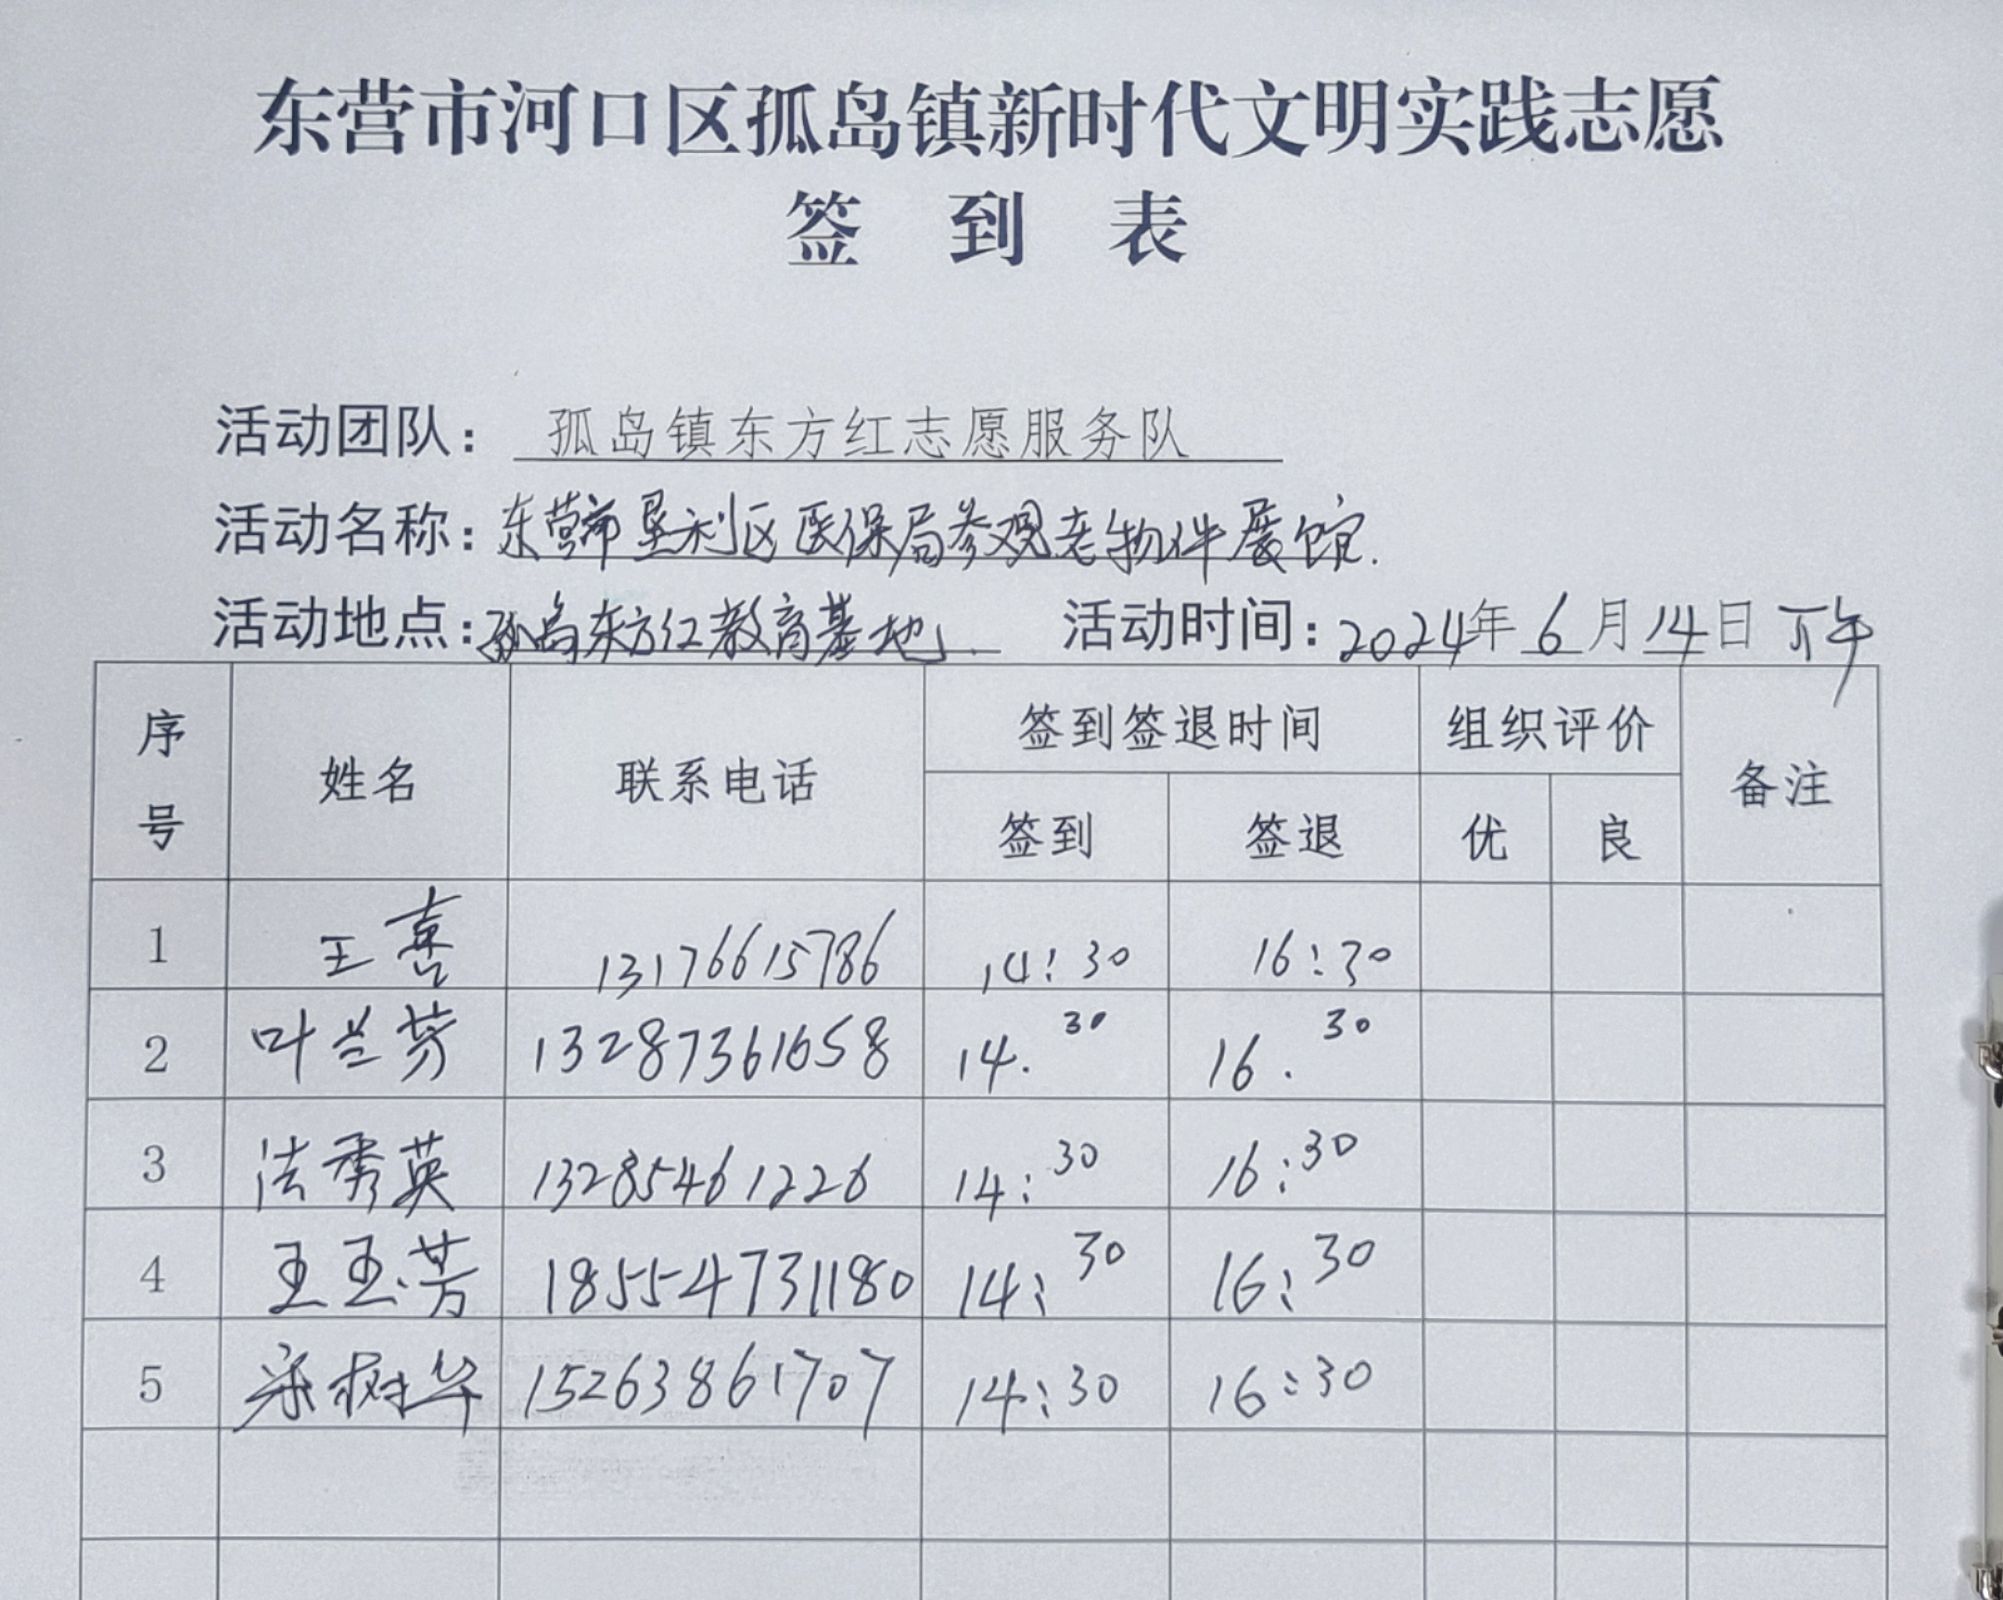 东营市河口区孤岛镇新时代文明实践志愿
签到表
活动团队：孤岛镇东方红志愿服务队
活动名称：东营市垦利区医保局参观老物件展馆.
活动地点：孤岛东方红教育基地. 活动时间：2024年6月14日下午
序号 姓名 联系电话 签到签退时间 组织评价 备注
签到 签退 优 良
1 王喜 13176615786 14:30 16:30
2 叶兰芳 13287361658 14.30 16.30
3 法秀英 13285461226 14:30 16:30
4 王玉芳 18554731180 14:30 16:30
5 宋树华 15263861707 14:30 16:30